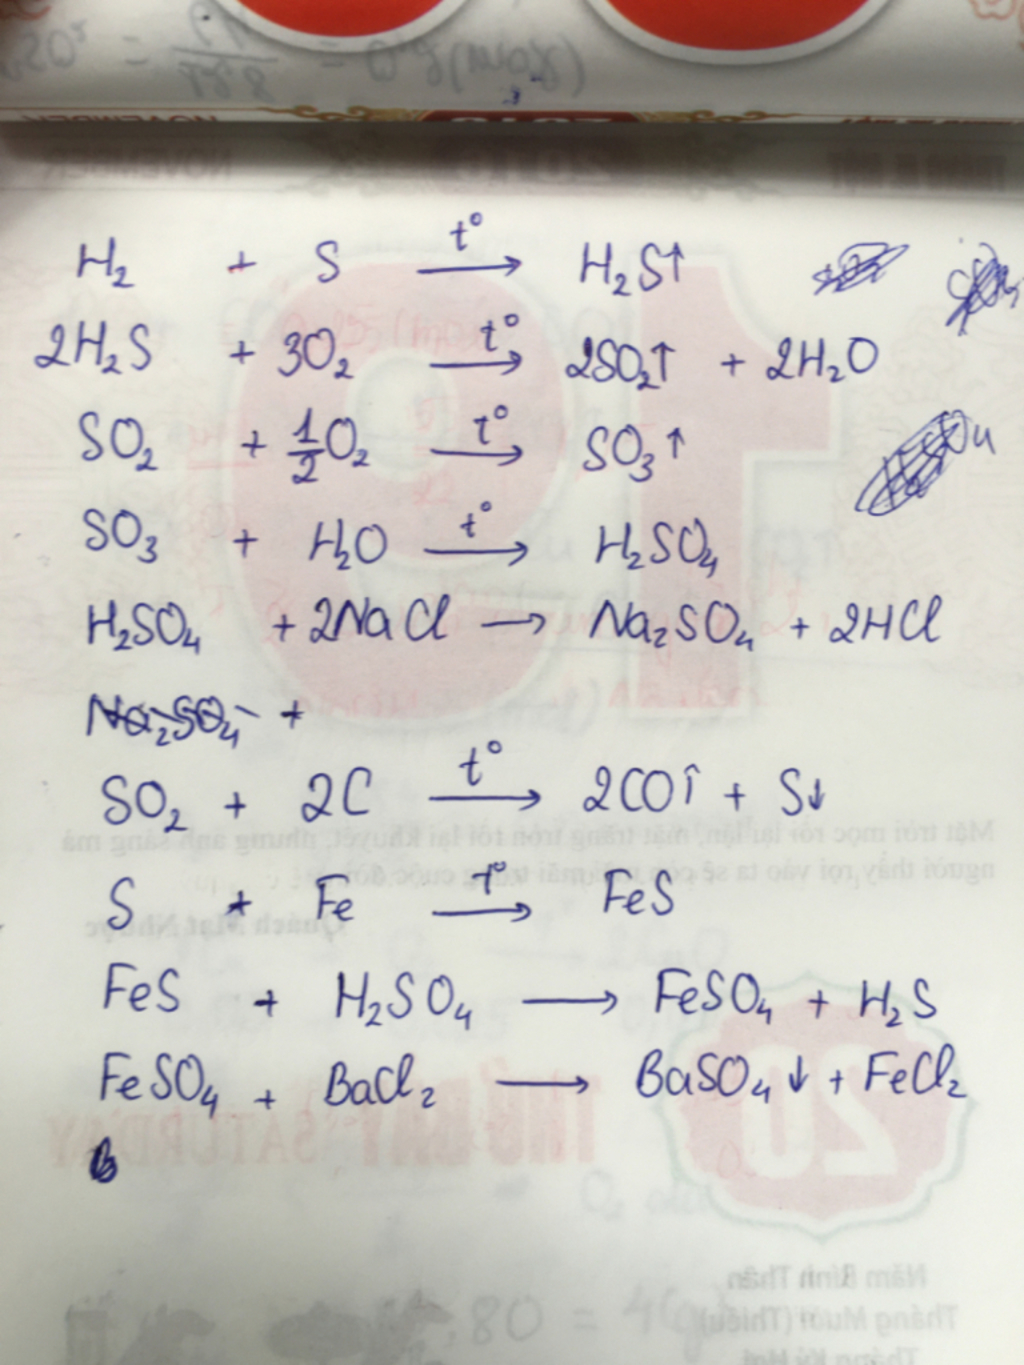 H₂ + S t° → H₂S↑
2H₂S + 3O₂ t° → 2SO₂↑ + 2H₂O
SO₂ + 1/2 O₂ t° → SO₃↑
SO₃ + H₂O t° → H₂SO₄
H₂SO₄ + 2NaCl → Na₂SO₄ + 2HCl
Na₂SO₄ +
SO₂ + 2C t° → 2CO↑ + S↓
S + Fe t° → FeS
FeS + H₂SO₄ → FeSO₄ + H₂S
FeSO₄ + BaCl₂ → BaSO₄↓ + FeCl₂